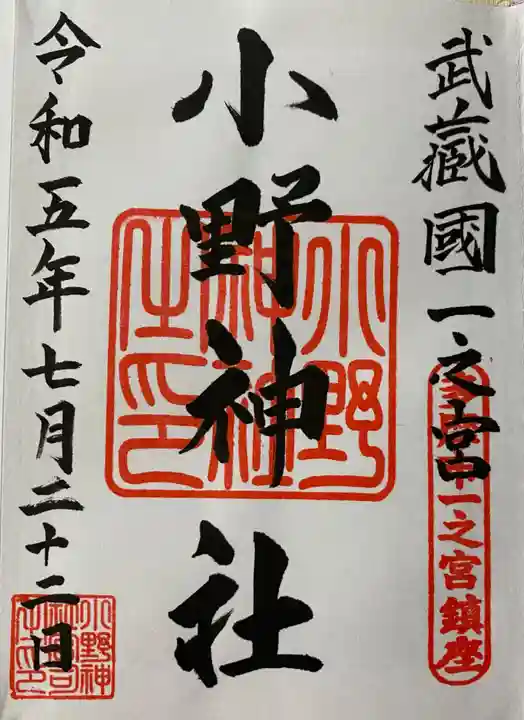 武藏國一之宮
一之宮鎮座
小野神社
令和五年七月二十二日
小野神